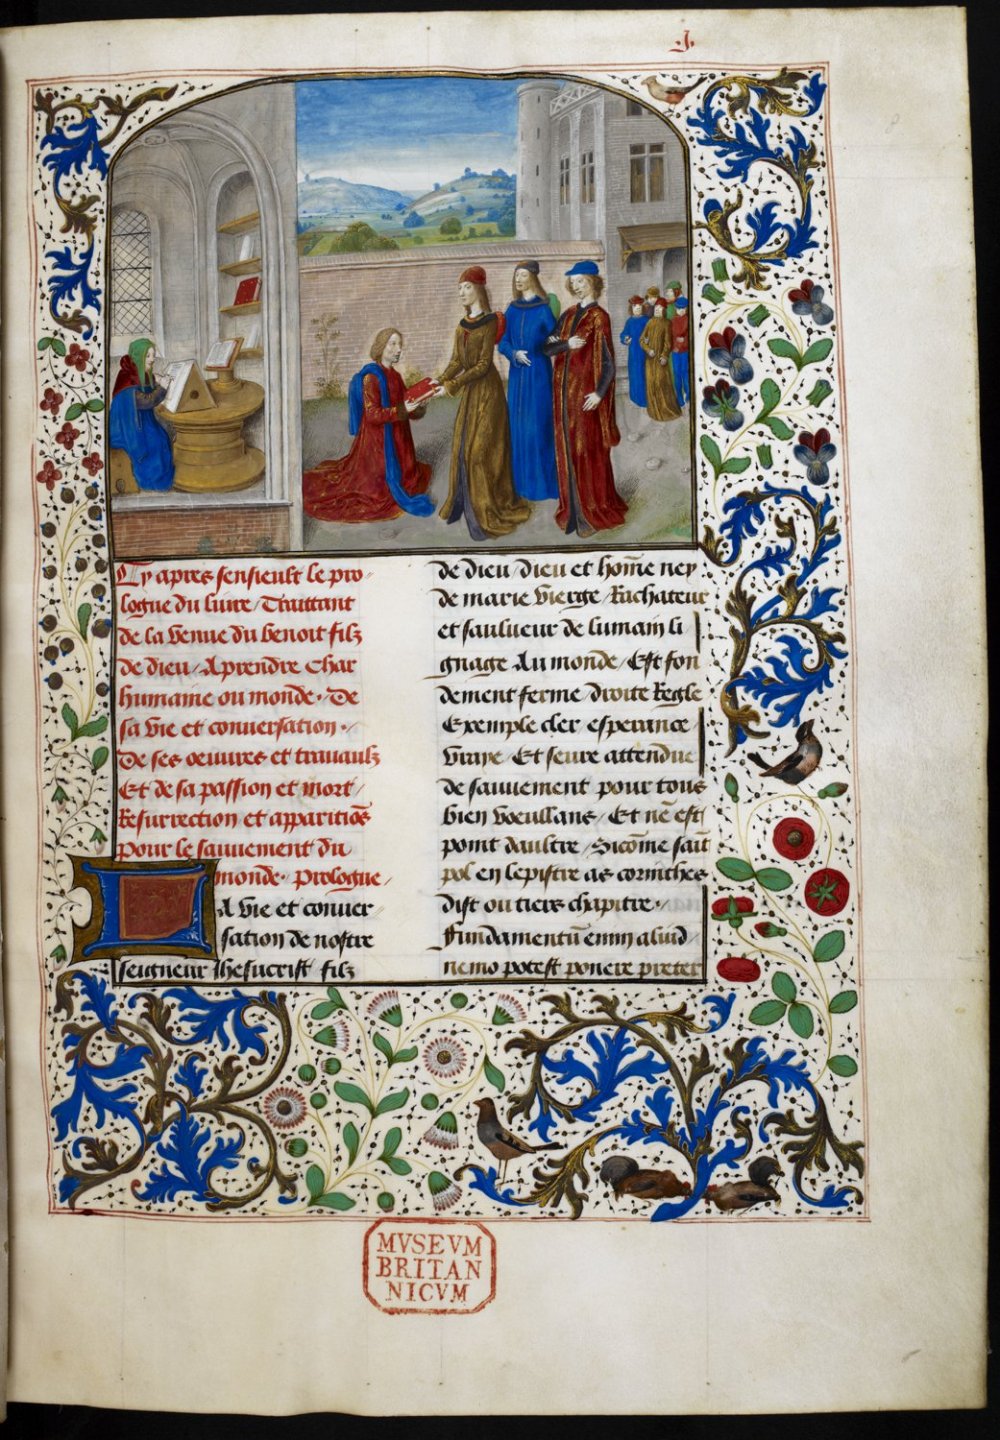 .j.
Cy apres sensieult le pro⸗
logue du liure / Traittant
de la venue du benoit filz
de dieu / Aprendre char
humaine ou monde · De
sa vie et conuersation ·
De ses oeuures et trauaulz
Et de sa passion et mort /
Resurrection et apparitiōs
pour le sauuement du
monde · prologue /
LA vie et conuer⸗
sation de nostre
seigneur Jhesucrist filz
de dieu / dieu et hom̄e ney
de marie vierge / Rachateur
et saulueur de lumain li
gnage Au monde / Est fon
dement ferme / droite Regle
Exemple cler esperance /
vraye / Et seure attendue
de sauuement pour tous
bien voeullans / Et nē est
point daultre / Sicōme sait
pol en lepistre as corinthes
dist ou tiers chapitre ·
Fundamentū enim aliud
nemo potest ponere preter
MVSEVM
BRITAN
NICVM